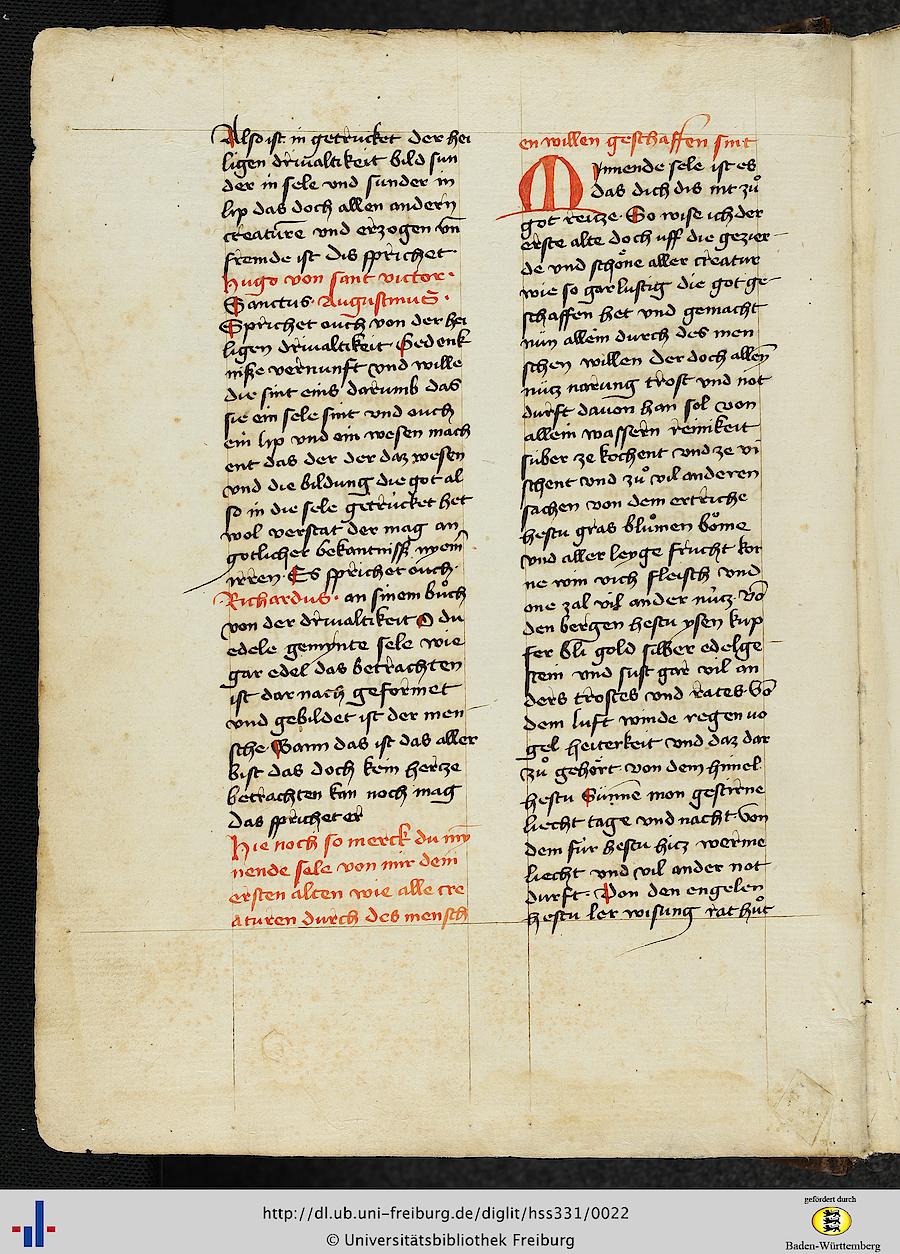 Also ist in getrucket der hei
ligen driualtikeit bild sun
der in sele vnd sunder in
lip das doch allen andern
creature vnd erzogen vn̄
fremde ist dis sprichet
hugo von sant victor·
Sanctus· Augustinus·
Sprichet ouch von der hei
ligen driualtikeit Gedenk
niße vernunft vnd wille
die sint eins darumb das
sie ein sele sint vnd ouch
ein lip vnd ein wesen mach
ent das der der daz wesen
vnd die bildung die got al
so in die sele getrucket het
wol verstat der mag an
gotlicher bekantniss nyem̄
irren· Es sprichet ouch·
Richardus· an sinem bůch
von der driualtikeit O du
edele gemynte sele wie
gar edel das betrachten
ist dar nach geformet
vnd gebildet ist der men
sche Wann das ist das aller
bist das doch kein hercze
betrachten kan noch mag
das sprichet er
Hie noch so merck du my
nende sele von mir dem
ersten alten wie alle cre
aturen durch des mensch
en willen geschaffen sint
Mynnende sele ist es
das dich dis nit zů
got reitze· So wise ich der
erste alte doch uff die gezier
de vnd schöne aller creatur
wie so gar lustig die got ge
schaffen het vnd gemacht
nun allein durch des men
schen willen der doch allen
nucz narung trost vnd not
durft davon han sol von
allein wassern reinikeit
suber ze kochent vnd ze vi
schent vnd zů vil anderen
sachen von dem ertriche
hestu gras blůmen böme
vnd aller leyge frucht kor
ne win vich fleisch vnd
one zal vil ander nucz· vō
den bergen hestu ysen kup
fer bli gold silber edelge
stein vnd sust gar vil an
ders trostes vnd rates Vō
dem luft winde regen vo
gel heiterkeit vnd daz dar
zů gehört von dem himel
hestu Sunne mon gestirne
liecht tage vnd nacht Von
dem für hestu hicz werme
liecht vnd vil ander not
durft· Von den engelen
hestu ler wisung rat hůt
http://dl.ub.uni-freiburg.de/diglit/hss331/0022
© Universitätsbibliothek Freiburg
gefördert durch
Baden-Württemberg